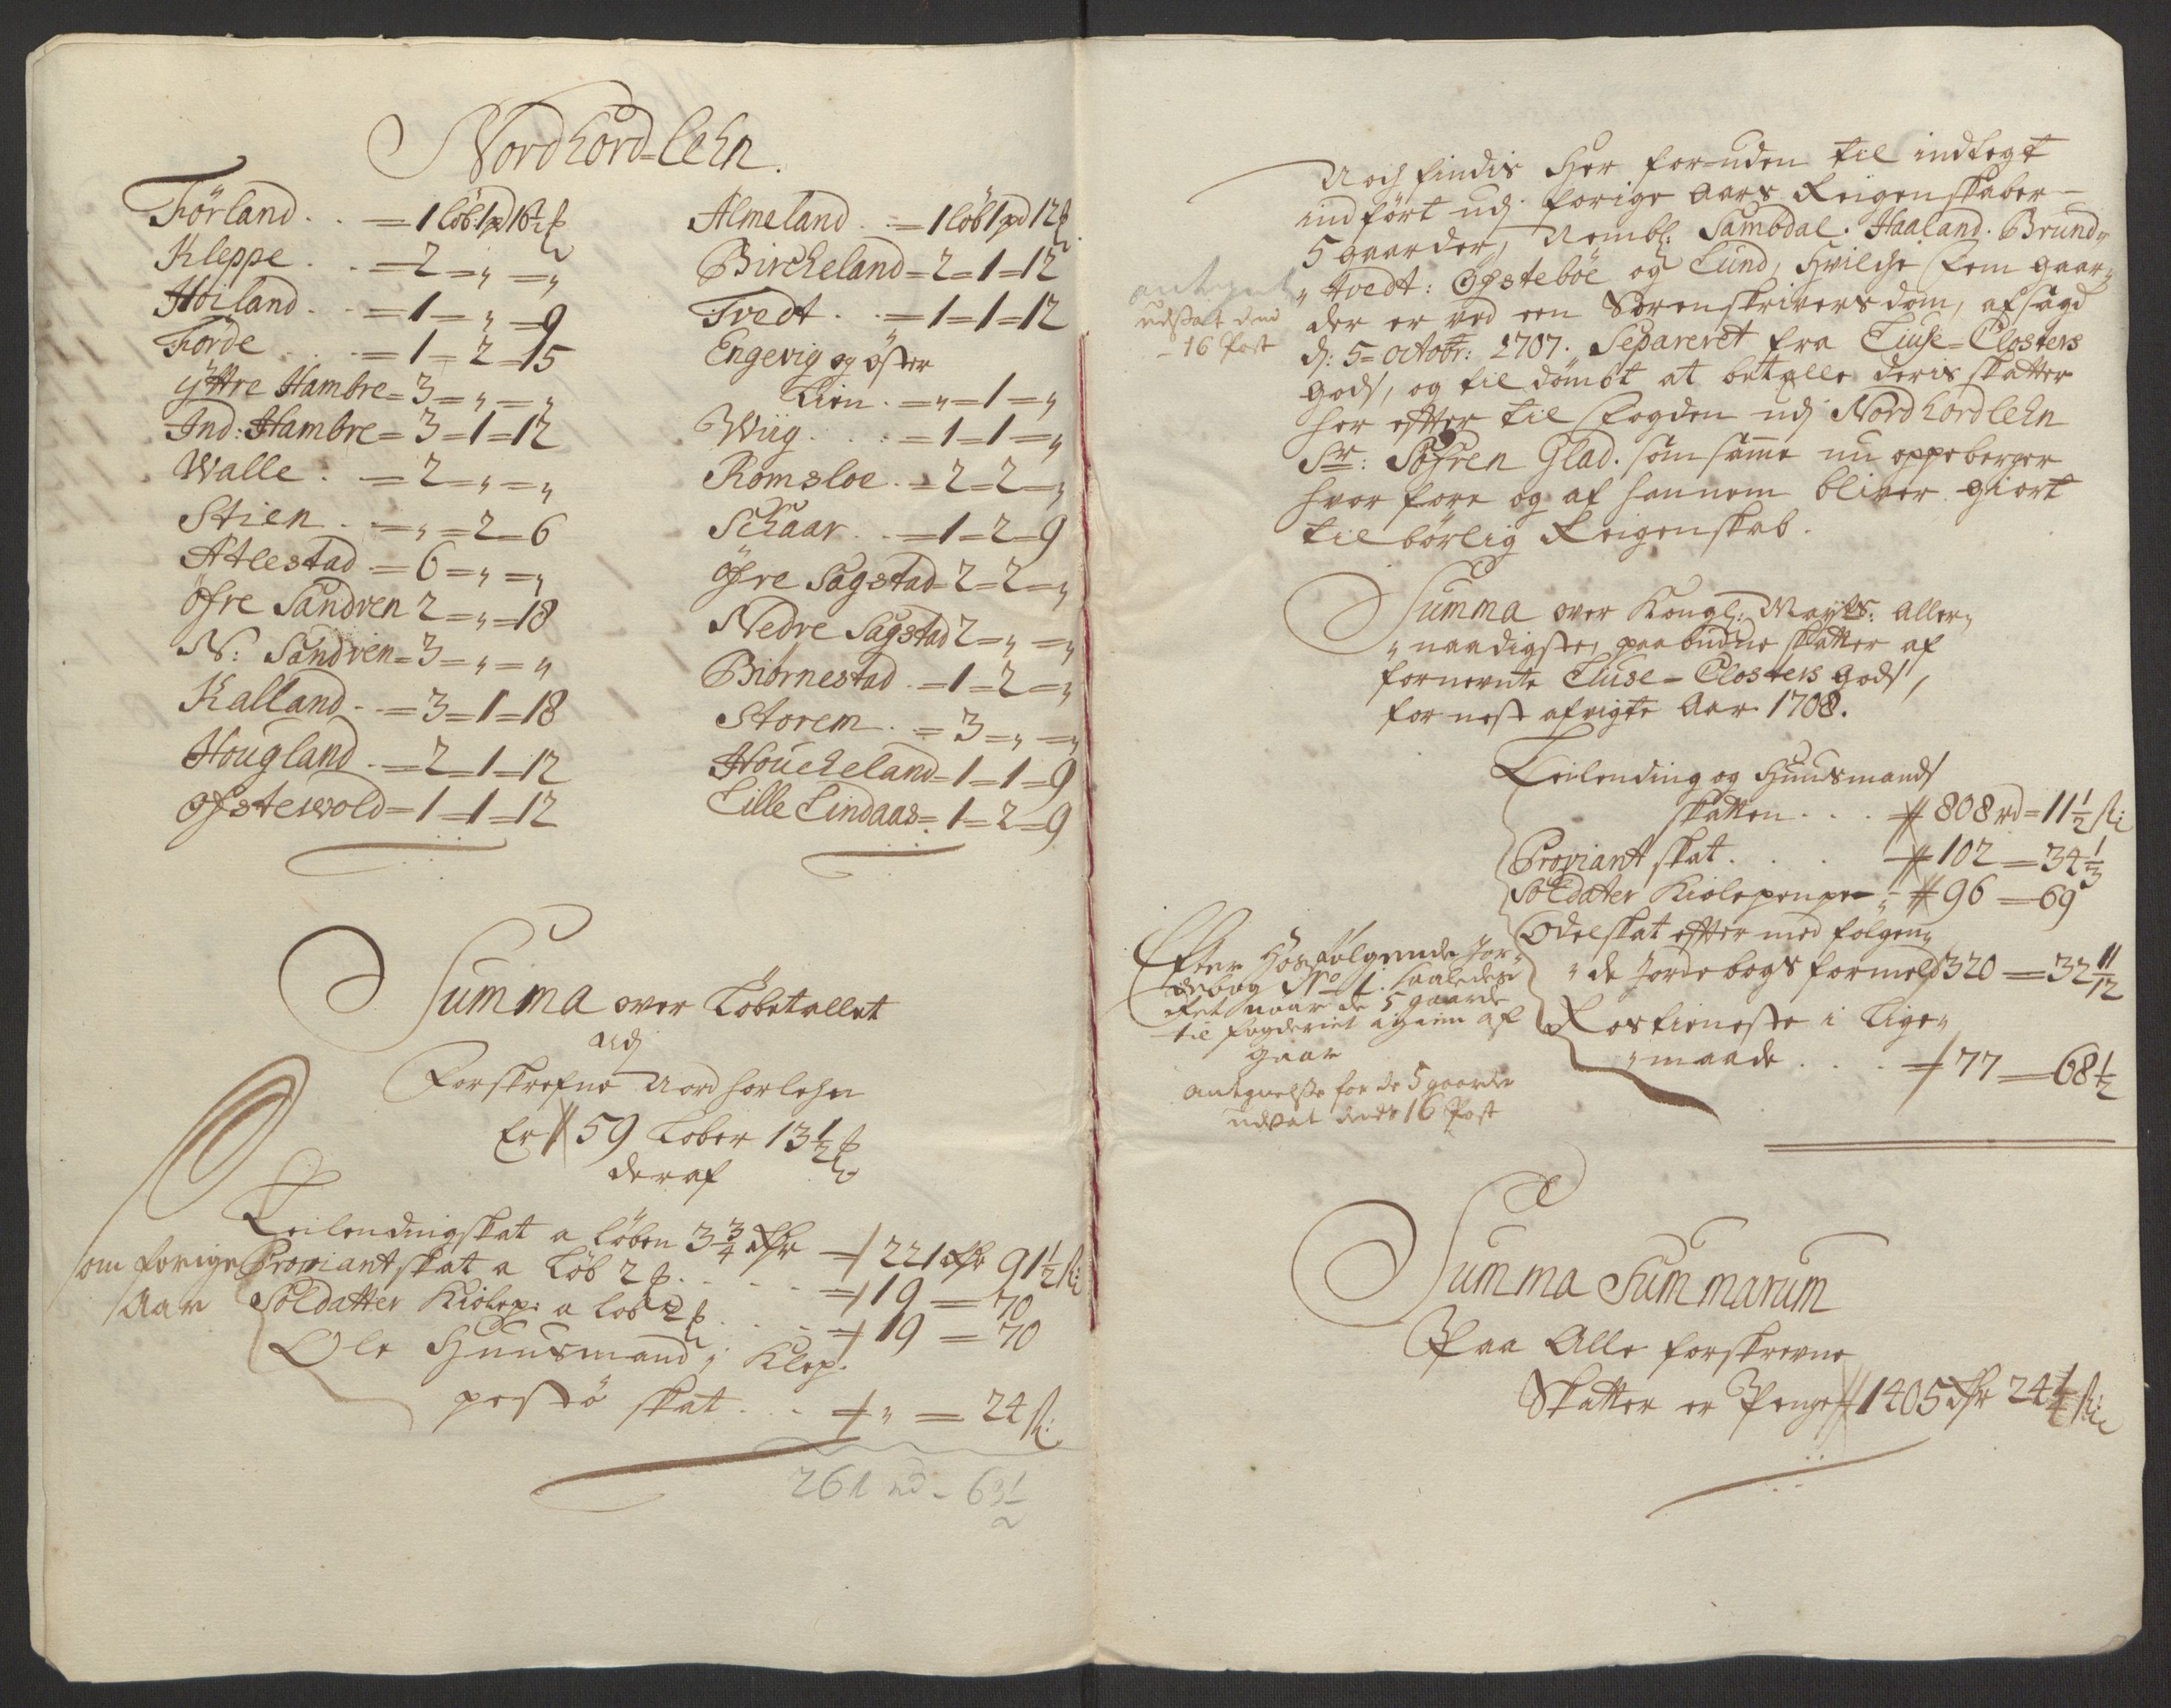 Nordhord=Lehn.
Förland . . = 1 löb 1 pd 16½ ℔
Kleppe . . = 2 = „ = „
Höiland . . = 1 = „ = 9
Förde . . = 1 = 2 = 15
Ÿttre Hambre = 3 = „ = „
Ind: Hambre = 3 = 1 = 12
Walle . = 2 = „ = „
Stien . = „ = 2 = 6
Atlestad . = 6 = „ = „
Öfre Sandven 2 = „ = 18
N: Sandven = 3 = „ = „
Kalland . . = 3 = 1 = 18
Hougland . = 2 = 1 = 12
Ofstewold = 1 = 1 = 12
Almeland . . = 1 löb 1 pd 12 ℔
Bircheland = 2 = 1 = 12
Tvedt . . = 1 = 1 = 12
Engevig og öster
Lien . = „ = 1 = „
Wiig . . . = 1 = 1 = „
Romsloe . = 2 = 2 = „
Schaar . . = 1 = 2 = 9
Öfre Sagstad = 2 = 2 = „
Nedre Sagstad 2 = „ = „
Biörnestad . = 1 = 2 = „
Storem . = 3 = „ = „
Houcheland = 1 = 1 = 9
Lille Lindaas = 1 = 2 = 9
Summa over Löbetallet
udj
Forskrefne Nordhorlehn
Er 59 Löber 13½ ℔
deraf
Leilendingskat a löben 3¾ Rdr = 221 Rdr 91½ ſz:
som forige Proviantskat a Löb 2 ℔ . . . = 19 = 70
Aar Soldatter Kiolep: a löb 2 ℔ . . . = 19 = 70
Ole Huusmand j Klep-
pestö skat . . = „ = 24 ſz:
261 rd - 63½
Noch findis Her foruden til indtegt
indfört udj forige Aars Reigenskaber
5 gaarder, Nembl: Sambdal. Haaland. Brund„
„tvedt: Ögsteböe og Lund, Hvilche fem gaar„
der er ved een Sorenskrivers dom, afsagd
d: 5 octobr: 1707. Separeret fra Liuse=Closters
gods, og tildömbt at betalle deris skatter
her efter til fogden udj Nordhordlehn
Sr: Söfren Glad. som samme nu oppeberger
hvorfore og af hannem bliver giort
tilbörlig Reigenskab.
antegnet
udsat dend
16 Post
Summa over Kongl: Mayts: Aller„
„naadigste, paabudne skatter af
fornevnte Liuse=Closters gods,
for nest afvigte Aar 1708.
Leilending og Huusmands
skatten . . . 808 rd = 11½ ſz:
Proviant skat . . . 102 = 34⅓
Soldater Kiolepenge 96 = 69
Odelskat efter med folgen„
„de Jordebogs formeld 320 = 32 11/12
Rostieneste i Lige„
„maade . . . = 77 = 68½
Efter Hosfölgende Jor„
debog No 1. saaledes
det naar de 5 gaarde
til fogderiet igien af
gaar
antegnelse for de 5 gaarde
udsat dends 16 Post
Summa Summarum
Paa Alle forskrevne
Skatter er Penge 1405 Rdr 24¼ ſz: